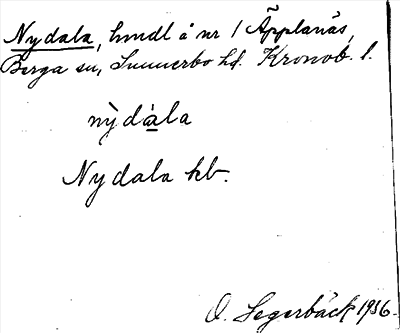 Nydala, hmdl å nr 1 Äpplanäs,
Berga sn, Sunnerbo hd. Kronob. l.
nỳdàla
Nydala kb.
O. Segerbäck 1936.